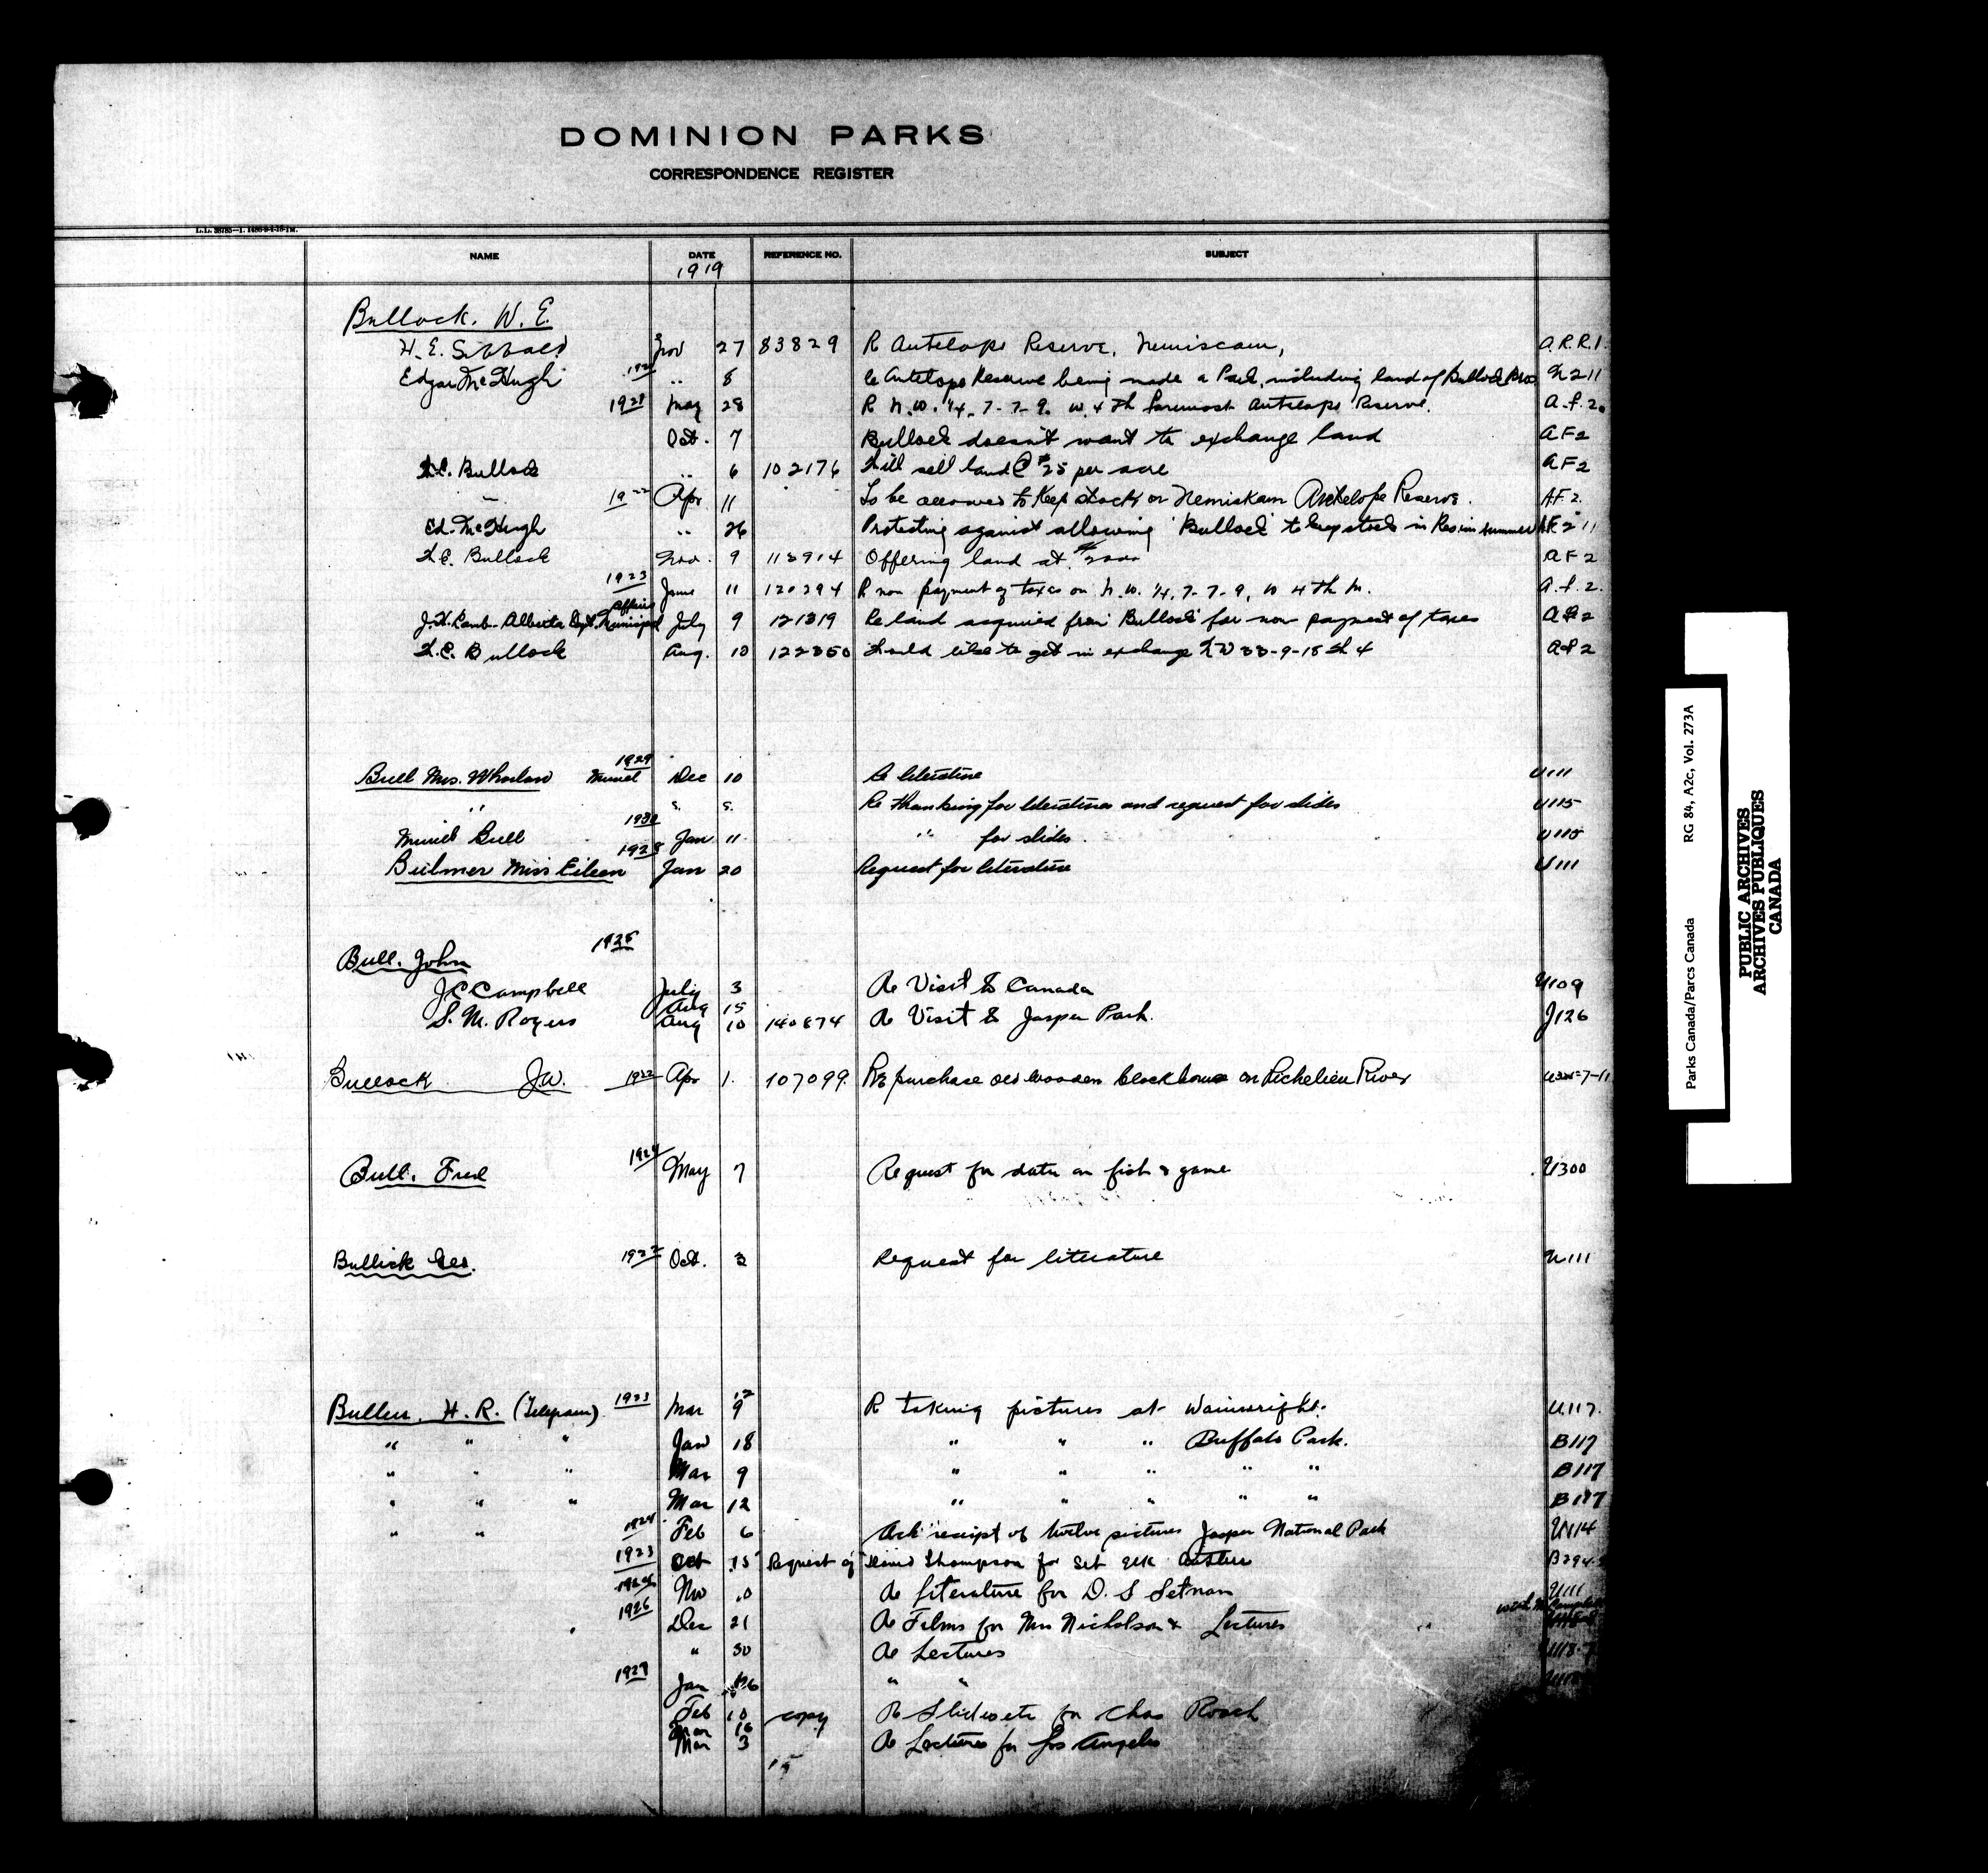 DOMINION PARKS
CORRESPONDENCE REGISTER
NAME DATE REFERENCE NO. SUBJECT
1919
Bullock. W. E.
H. E. Sibbald Nov 27 83829 R Antelope Reserve, Nemiscam, A.R.R.1.
Edgar McHugh " 8 Re Antelope Reserve being made a Park, including land of Bullock Bros. U211
1921 May 28 R N.W. 1/4. 7-7-9. W. 4th Foremost Antelope Reserve. A.F.2.
Oct. 7 Bullock doesn't want to exchange land AF2
W.E. Bullock " 6 102176 Will sell land @ $25 per acre AF2
" 1922 Apr. 11 To be allowed to keep stock on Nemiskam Antelope Reserve. A.F.2.
Ed. McHugh " 26 Protesting against allowing Bullock to keep stock in Res in summer
W.E. Bullock Nov. 9 113914 Offering land at $2000 AF2
1923 June 11 120294 R non payment of taxes on N.W. 1/4, 7-7-9, W 4th M. A.F.2.
Alberta Dept. Municipal Affairs July 9 121319 Re land acquired from Bullock for non payment of taxes AF2
W.E. Bullock Aug. 10 122350 Would like to get in exchange NW 33-9-18 W 4 AF2
Bull Mrs. Muriel 1929 Dec 10 Re literature U111
" " " Re thanking for literature and request for slides U115
Muriel Bull 1930 Jan 11 " for slides. U115
Bulmer Miss Eileen 1928 Jan 20 Request for literature U111
Bull. John 1925
J C Campbell July 3 Re Visit to Canada U109
Aug 15
S. M. Rogers Aug 10 140874 Re Visit to Jasper Park. J126
Bullock J.W. 1922 Apr 1. 107099. Re purchase old wooden blockhouse on Richelieu River
Bull. Fred 1924 May 7 Request for data on fish & game U300
Bullick Geo. 1922 Oct. 3 Request for literature U111
Bullen. H. R. (Telegram) 1923 Mar 12 9 R taking pictures at Wainwright. U.117.
" " " Jan 18 " " " Buffalo Park. B117
" " " Mar 9 " " " " " B117
" " " Mar 12 " " " " " B117
" " 1924 Feb 6 Ack receipt of twelve pictures Jasper National Park U114
1923 Oct 15 Request of Thompson for set elk antlers
Nov 10 Re literature for D. S Setnan U111
1926 Dec 21 Re Films for Mrs Nicholson & Lectures
" 30 Re Lectures
1927 Jan " "
Feb 10 copy Re Slides etc for Chas Roach
Mar 16
Mar 3 Re Lectures for Los Angeles
15
RG 84, A2c, Vol. 273A
Parks Canada/Parcs Canada
PUBLIC ARCHIVES
ARCHIVES PUBLIQUES
CANADA